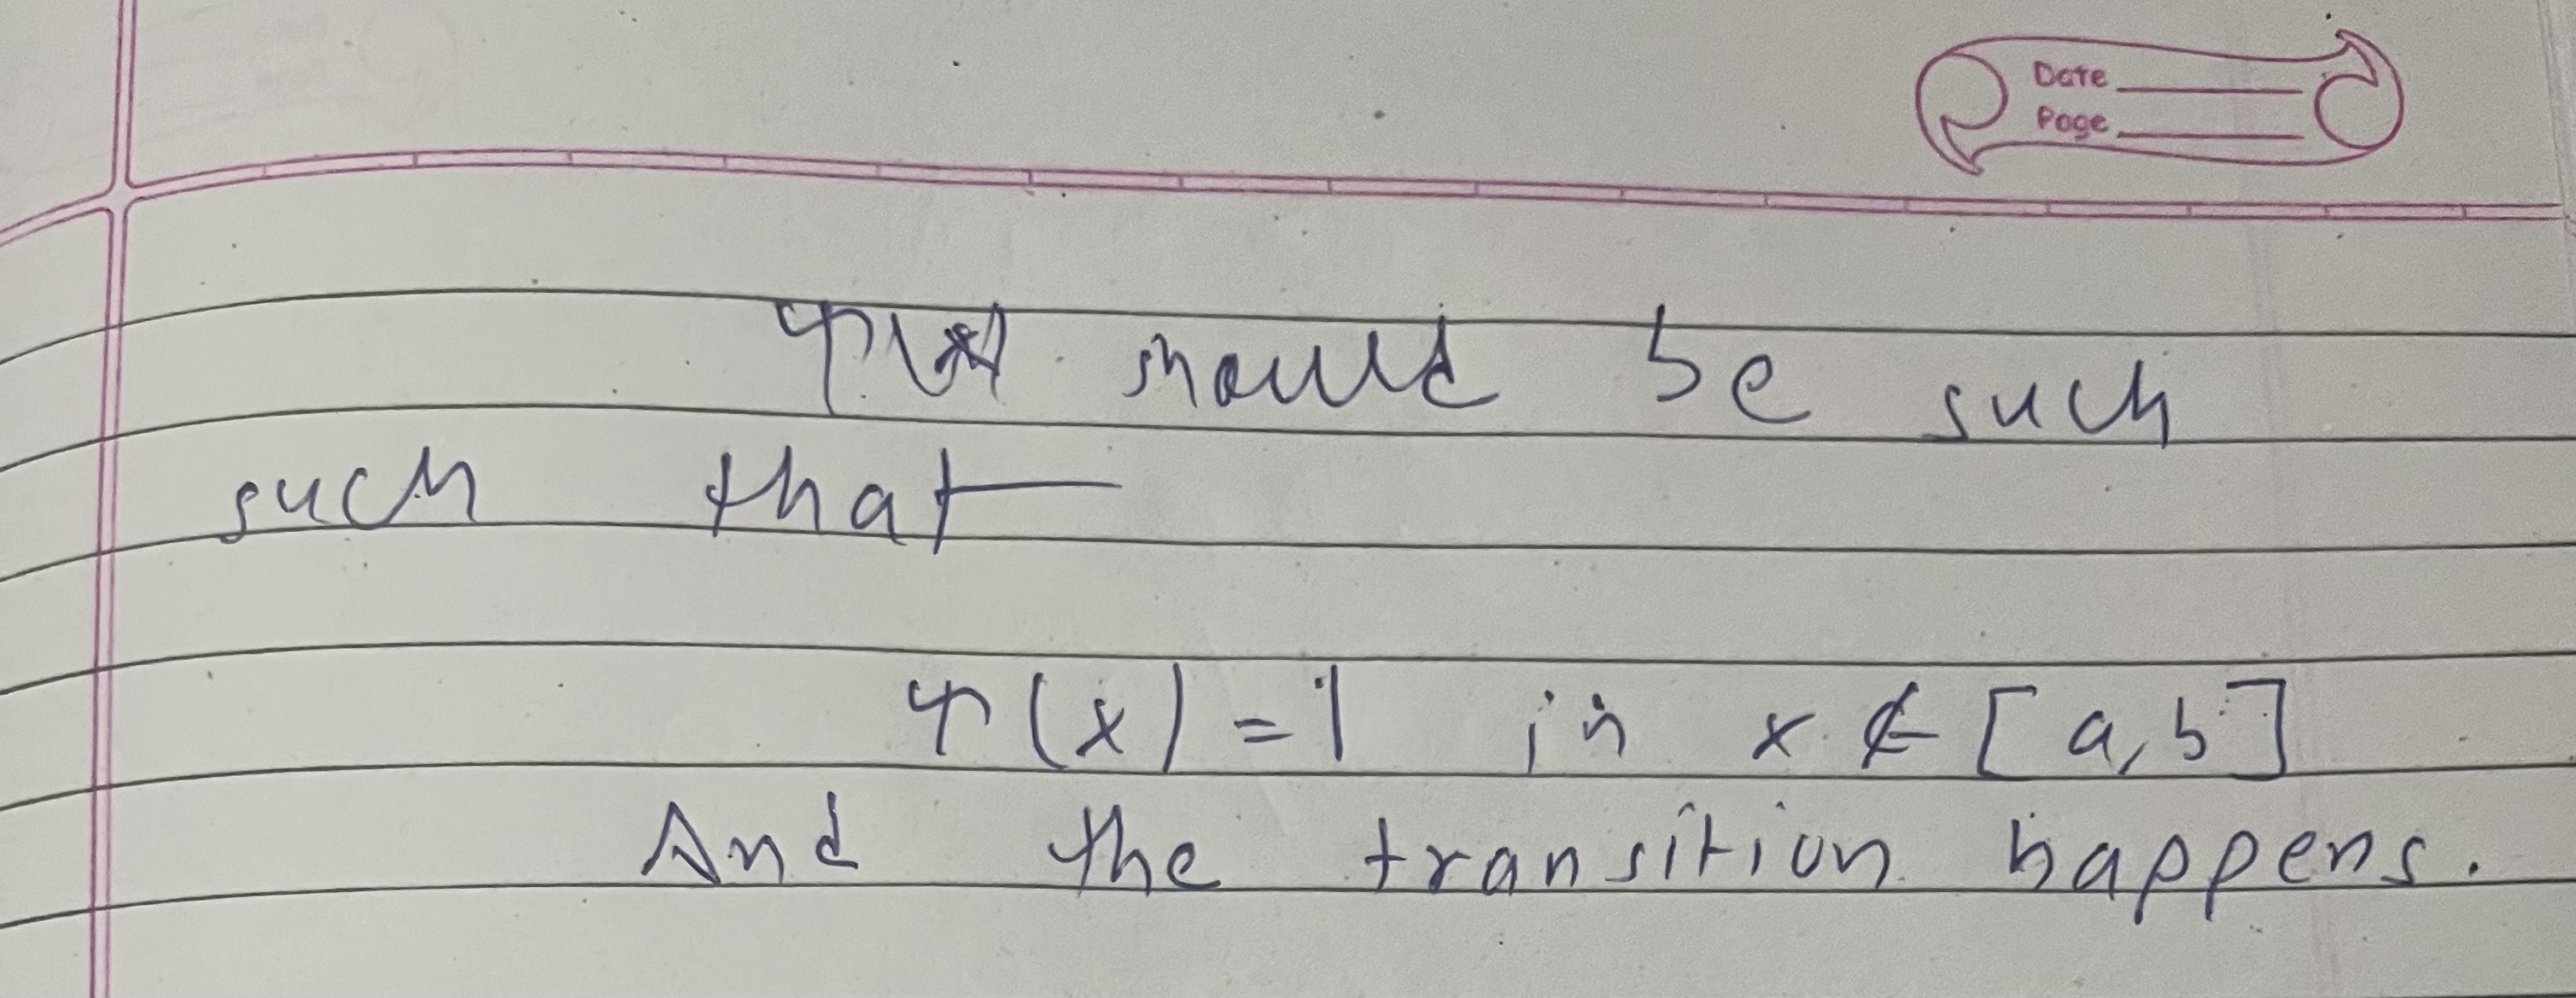 Date
Page
ψ(x) should be such
such that—
ψ(x) = 1 in x ∉ [a, b]
And the transition happens.